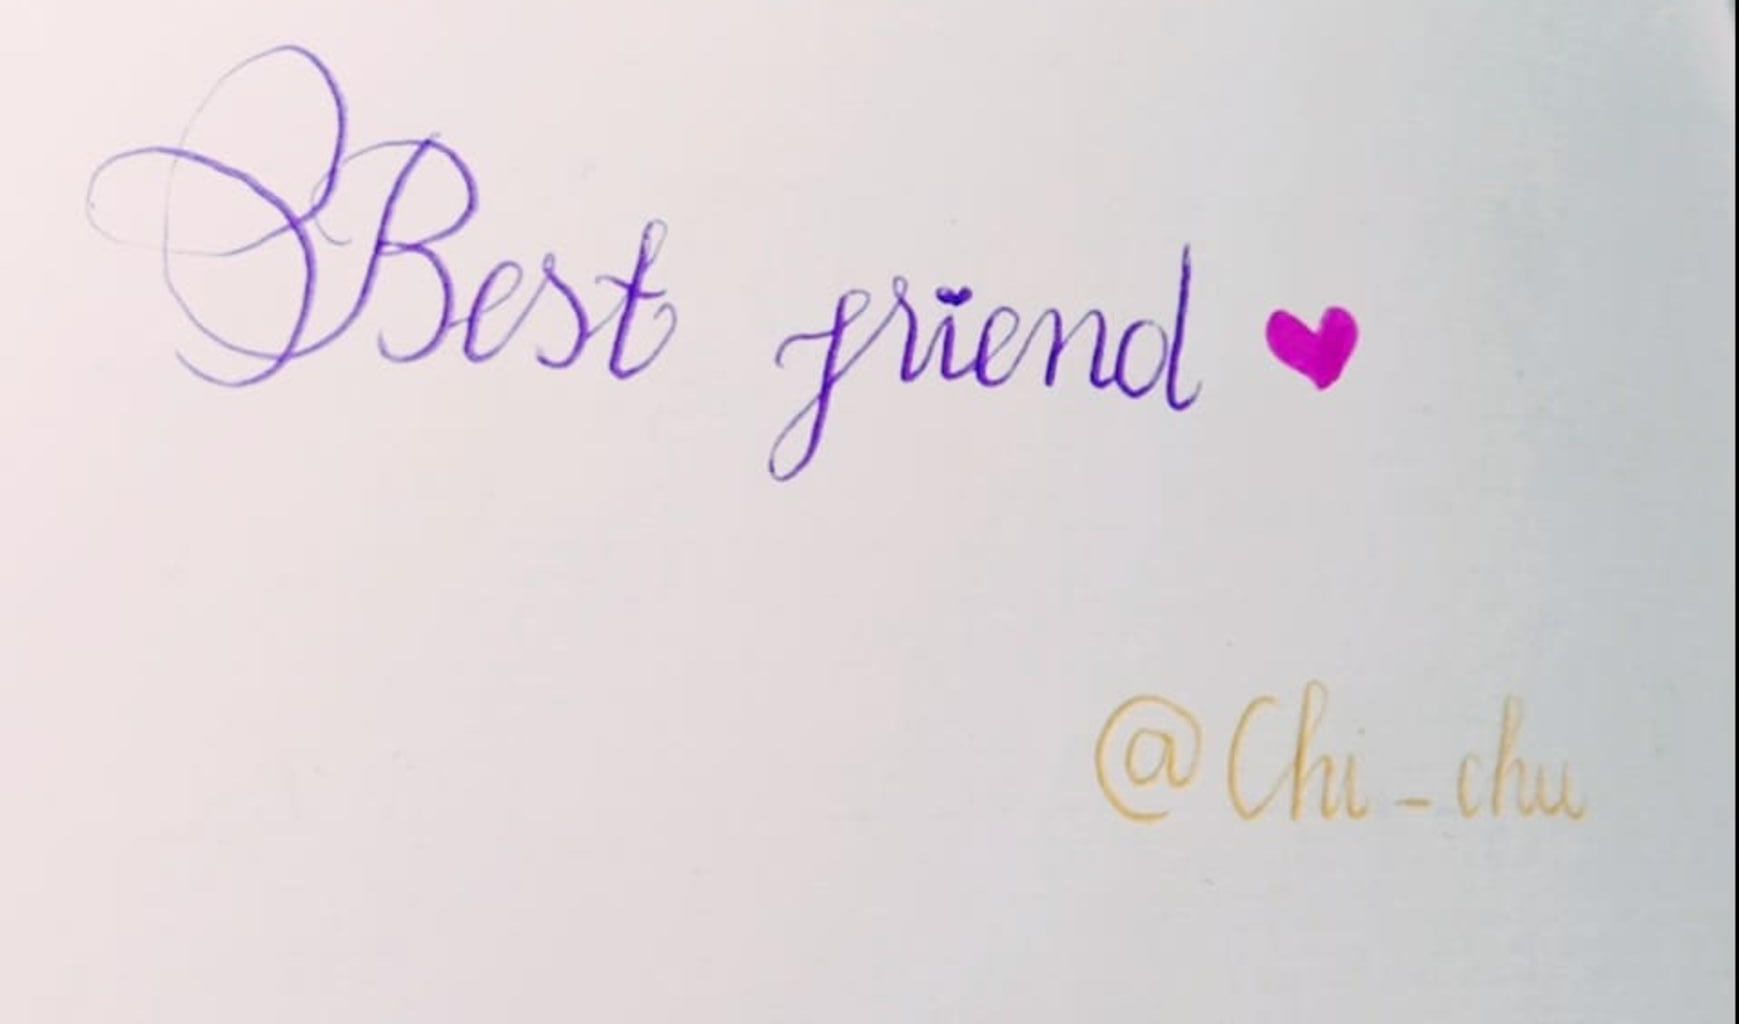 Best friend ♥
@Chi_chu